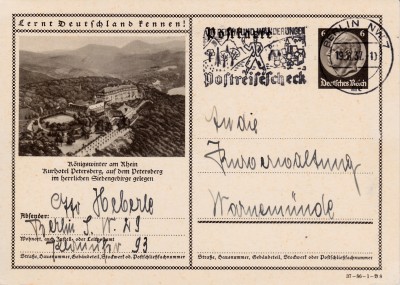 Lernt Deutschland kennen!
Postkarte
WANDERUNGEN
Postreisescheck
BERLIN NW 7
6
Deutsches Reich
Königswinter am Rhein
Kurhotel Petersberg, auf dem Petersberg
im herrlichen Siebengebirge gelegen
Absender: Otto Heberle
Berlin S.W. 29
Wohnort, auch Zustell- oder Leitpostamt
93
Straße, Hausnummer, Gebäudeteil, Stockwerk od. Postschließfachnummer
An die
Kurverwaltung
Warnemünde
Straße, Hausnummer, Gebäudeteil, Stockwerk oder Postschließfachnummer
37-86-1-B 6